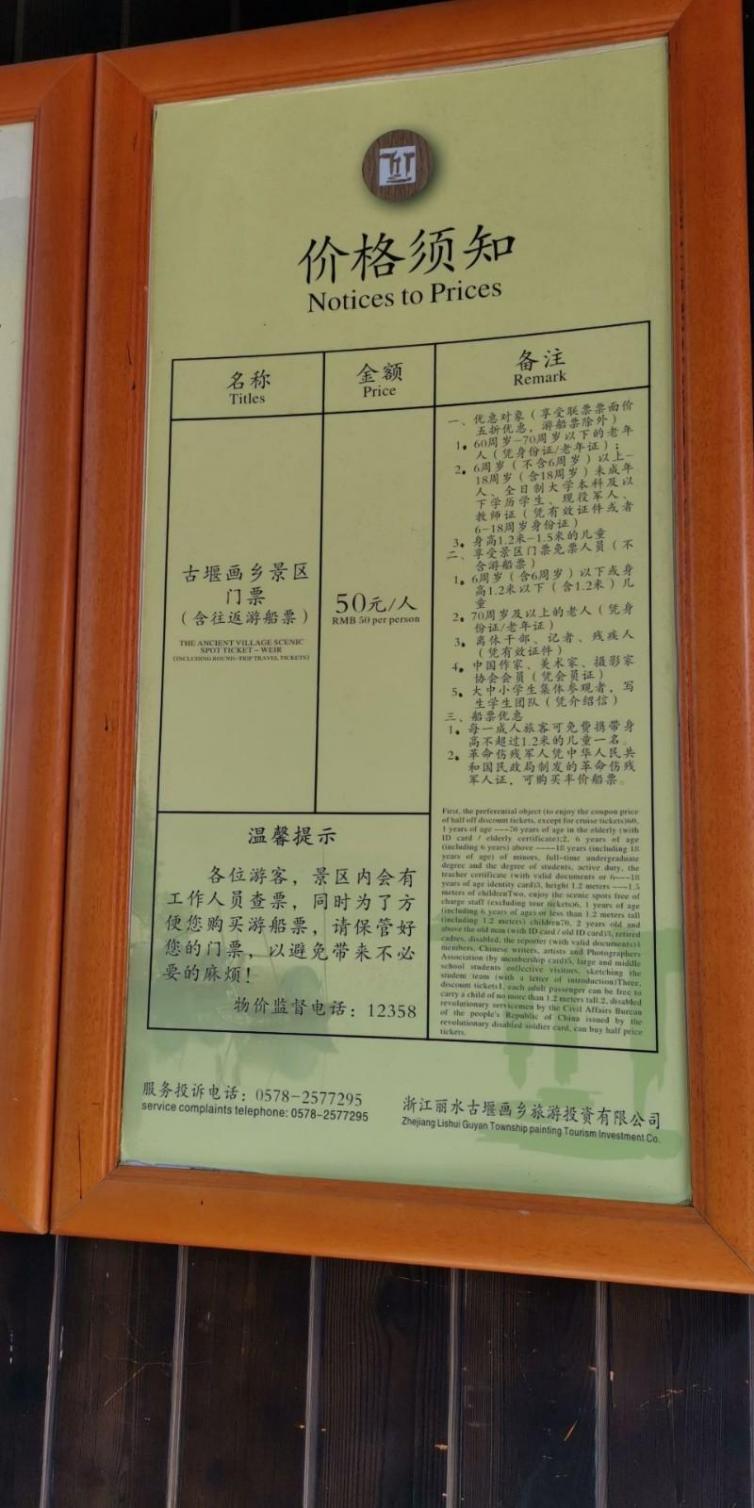 价格须知
Notices to Prices
名称
Titles
金额
Price
备注
Remark
古堰画乡景区
门票
（含往返游船票）
THE ANCIENT VILLAGE SCENIC
SPOT TICKET - WEIR
(INCLUDING ROUND-TRIP TRAVEL TICKETS)
50元/人
RMB 50 per person
一、优惠对象（享受联票票面价
五折优惠，游船票除外）
1。60周岁-70周岁以下的老年
人（凭身份证/老年证）；
2。6周岁（不含6周岁）以上-
18周岁（含18周岁）未成年
人、全日制大学本科及以
下学历学生、现役军人、
教师证（凭有效证件或者
6-18周岁身份证）
3。身高1.2米-1.5米的儿童
二、享受景区门票免票人员（不
含游船票）
1。6周岁（含6周岁）以下或身
高1.2米以下（含1.2米）儿
童
2。70周岁及以上的老人（凭身
份证/老年证）
3。离休干部、记者、残疾人
（凭有效证件）
4。中国作家、美术家、摄影家
协会会员（凭会员证）
5。大中小学生集体参观者，写
生学生团队（凭介绍信）
三、船票优惠
1。每一成人旅客可免费携带身
高不超过1.2米的儿童一名。
2。革命伤残军人凭中华人民共
和国民政局制发的革命伤残
军人证，可购买半价船票。
First, the preferential object (to enjoy the coupon price
of half off discount tickets, except for cruise tickets)60,
1 years of age ---70 years of age in the elderly (with
ID card / elderly certificate);2, 6 years of age
(including 6 years) above ----18 years (including 18
years of age) of minors, full-time undergraduate
degree and the degree of students, active duty, the
teacher certificate (with valid documents or 6---18
years of age identity card)3, height 1.2 meters ---1.5
meters of childrenTwo, enjoy the scenic spots free of
charge staff (excluding tour tickets)6, 1 years of age
(including 6 years of age) or less than 1.2 meters tall
(including 1.2 meters) children70, 2 years old and
above the old man (with ID card / old ID card)3, retired
cadres, disabled, the reporter (with valid documents)4
members, Chinese writers, artists and Photographers
Association (by membership card)5, large and middle
school students collective visitors, sketching the
student team (with a letter of introduction)Three,
discount tickets1, each adult passenger can be free to
carry a child of no more than 1.2 meters tall.2, disabled
revolutionary servicemen by the Civil Affairs Bureau
of the people's Republic of China issued by the
revolutionary disabled soldier card, can buy half price
tickets.
温馨提示
各位游客，景区内会有
工作人员查票，同时为了方
便您购买游船票，请保管好
您的门票，以避免带来不必
要的麻烦！
物价监督电话：12358
服务投诉电话：0578-2577295
service complaints telephone: 0578-2577295
浙江丽水古堰画乡旅游投资有限公司
Zhejiang Lishui Guyan Township painting Tourism Investment Co.